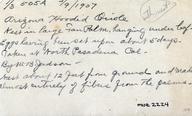 1/3 505a 7/9/1907
Arizona Hooded Oriole
Nest in large Fan Palm, hanging under leaf.
Eggs having been set upon about 5 days.
Taken at North Pasadena Cal.
By W.B. Judson
Nest about 12 feet from ground and made
almost entirely of fibres from the palms.
MVZ 2224